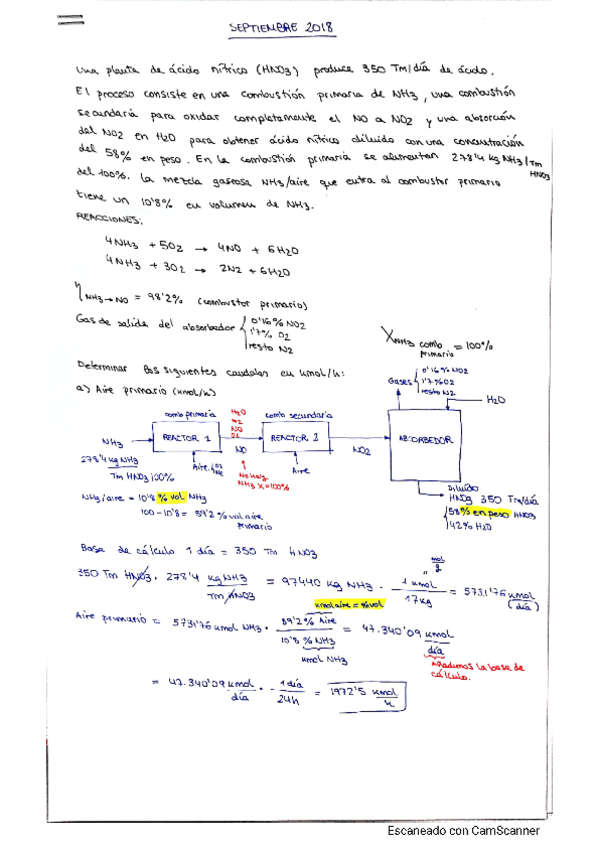 SEPTIEMBRE 2018
Una planta de ácido nítrico (HNO3) produce 350 Tm/día de ácido.
El proceso consiste en una combustión primaria de NH3, una combustión
secundaria para oxidar completamente el NO a NO2 y una absorción
del NO2 en H2O para obtener ácido nítrico diluido con una concentración
del 58% en peso. En la combustión primaria se alimentan 278'4 kg NH3/Tm HNO3
del 100%. La mezcla gaseosa NH3/aire que entra al combustor primario
tiene un 10'8% en volumen de NH3.
REACCIONES:
4NH3 + 5O2 → 4NO + 6H2O
4NH3 + 3O2 → 2N2 + 6H2O
η NH3→NO = 98'2% (combustor primario)
Gas de salida del absorbedor { 0'16% NO2
1'7% O2
resto N2
XNH3 comb primario = 100%
Determinar los siguientes caudales en kmol/h:
a) Aire primario (kmol/h)
Gases { 0'16% NO2
1'7% O2
resto N2
H2O
comb primaria
H2O
N2
NO
O2
comb secundaria
NH3
REACTOR 1
NO
REACTOR 2
NO2
ABSORBEDOR
278'4 kg NH3
Tm HNO3 100%
Aire { O2
N2
No hay
NH3 X=100%
Aire
Diluido
HNO3 350 Tm/día
{ 58% en peso HNO3
42% H2O
NH3/aire = 10'8 % vol NH3
100 - 10'8 = 89'2 % vol aire
primario
Base de cálculo 1 día = 350 Tm HNO3
350 Tm HNO3 · 278'4 kg NH3 / Tm HNO3 = 97440 kg NH3 · 1 kmol / 17 kg = 5731'76 kmol (día)
mol
g
kmol aire = % vol
Aire primario = 5731'76 kmol NH3 · 89'2 % Aire / 10'8 % NH3 = 47.340'09 kmol / día
kmol NH3
Añadimos la base de
cálculo.
= 47.340'09 kmol / día · 1 día / 24h = 1972'5 kmol / h
Escaneado con CamScanner